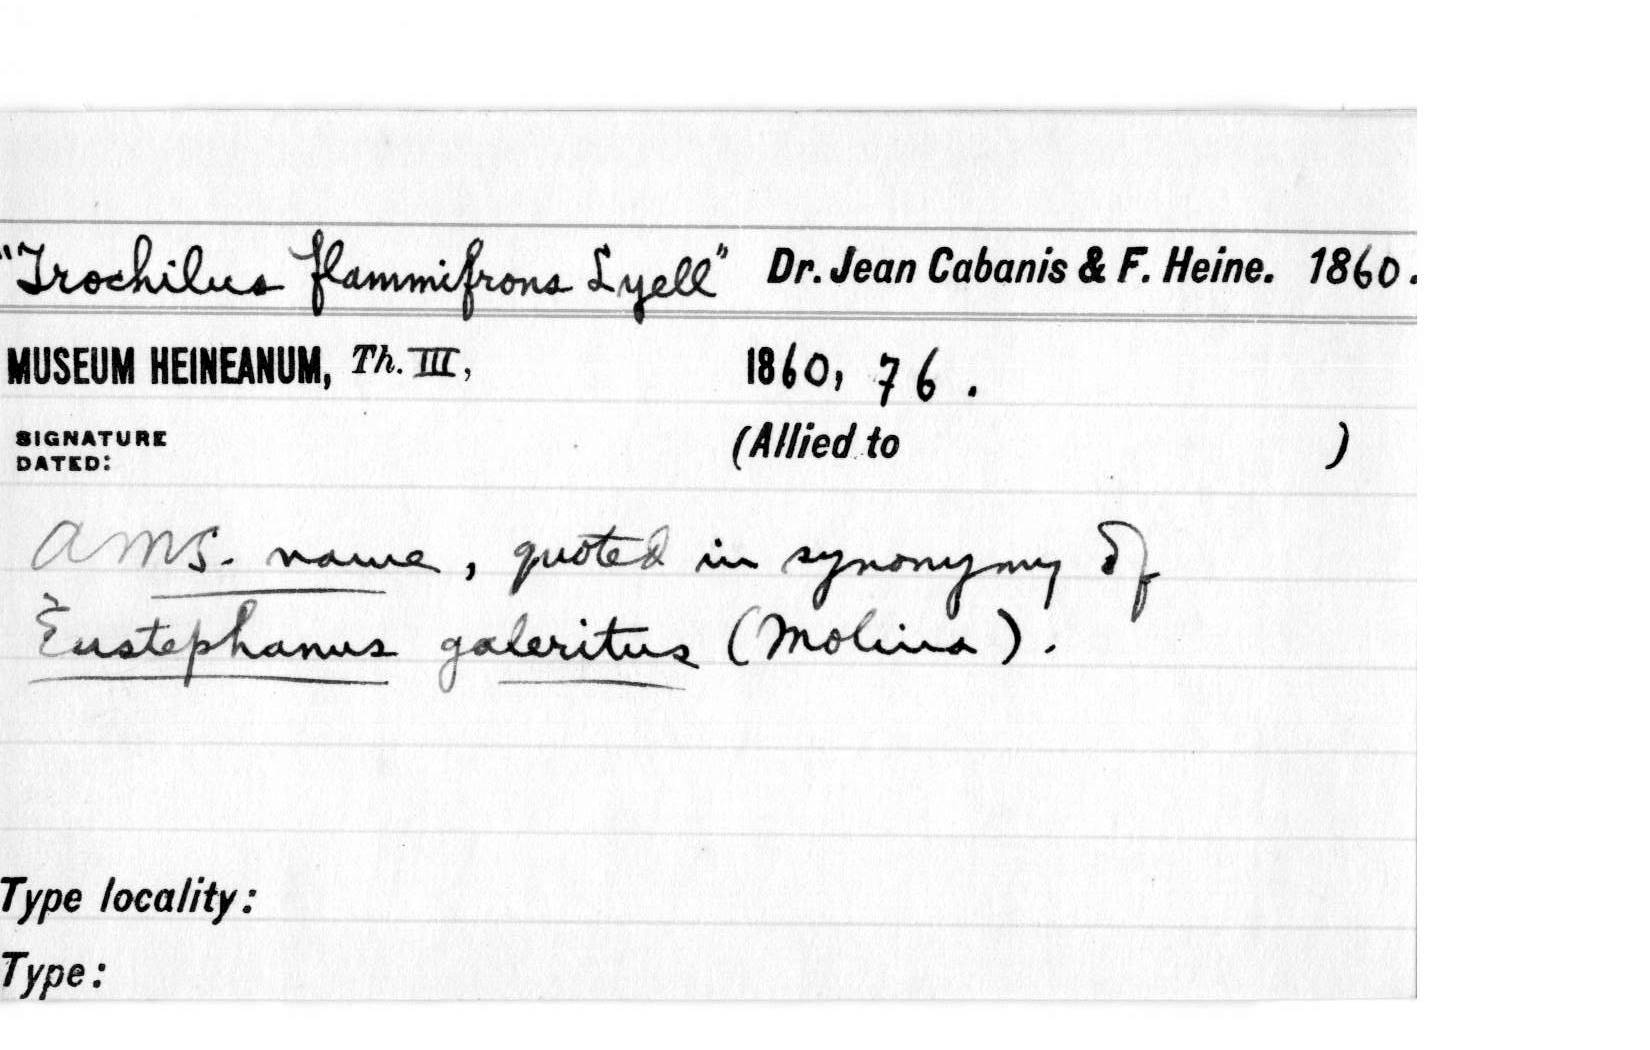 "Trochilus flammifrons Lyell" Dr. Jean Cabanis & F. Heine. 1860.
MUSEUM HEINEANUM, Th. III, 1860, 76.
SIGNATURE DATED: (Allied to )
a MS. name, quoted in synonymy of
Eustephanus galeritus (Molina).
Type locality:
Type: